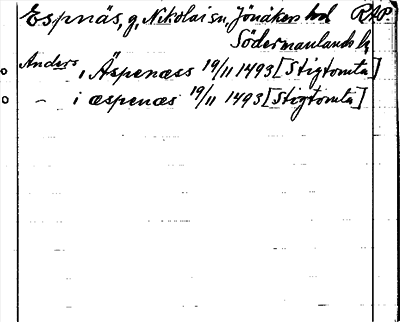 Espnäs, g, Nikolai sn, Jönåkers hd RAP.
Södermanlands l.
Anders i Äspenæss 19/11 1493 [Stigtomta]
— i æspenæs 19/11 1493 [Stigtomta]